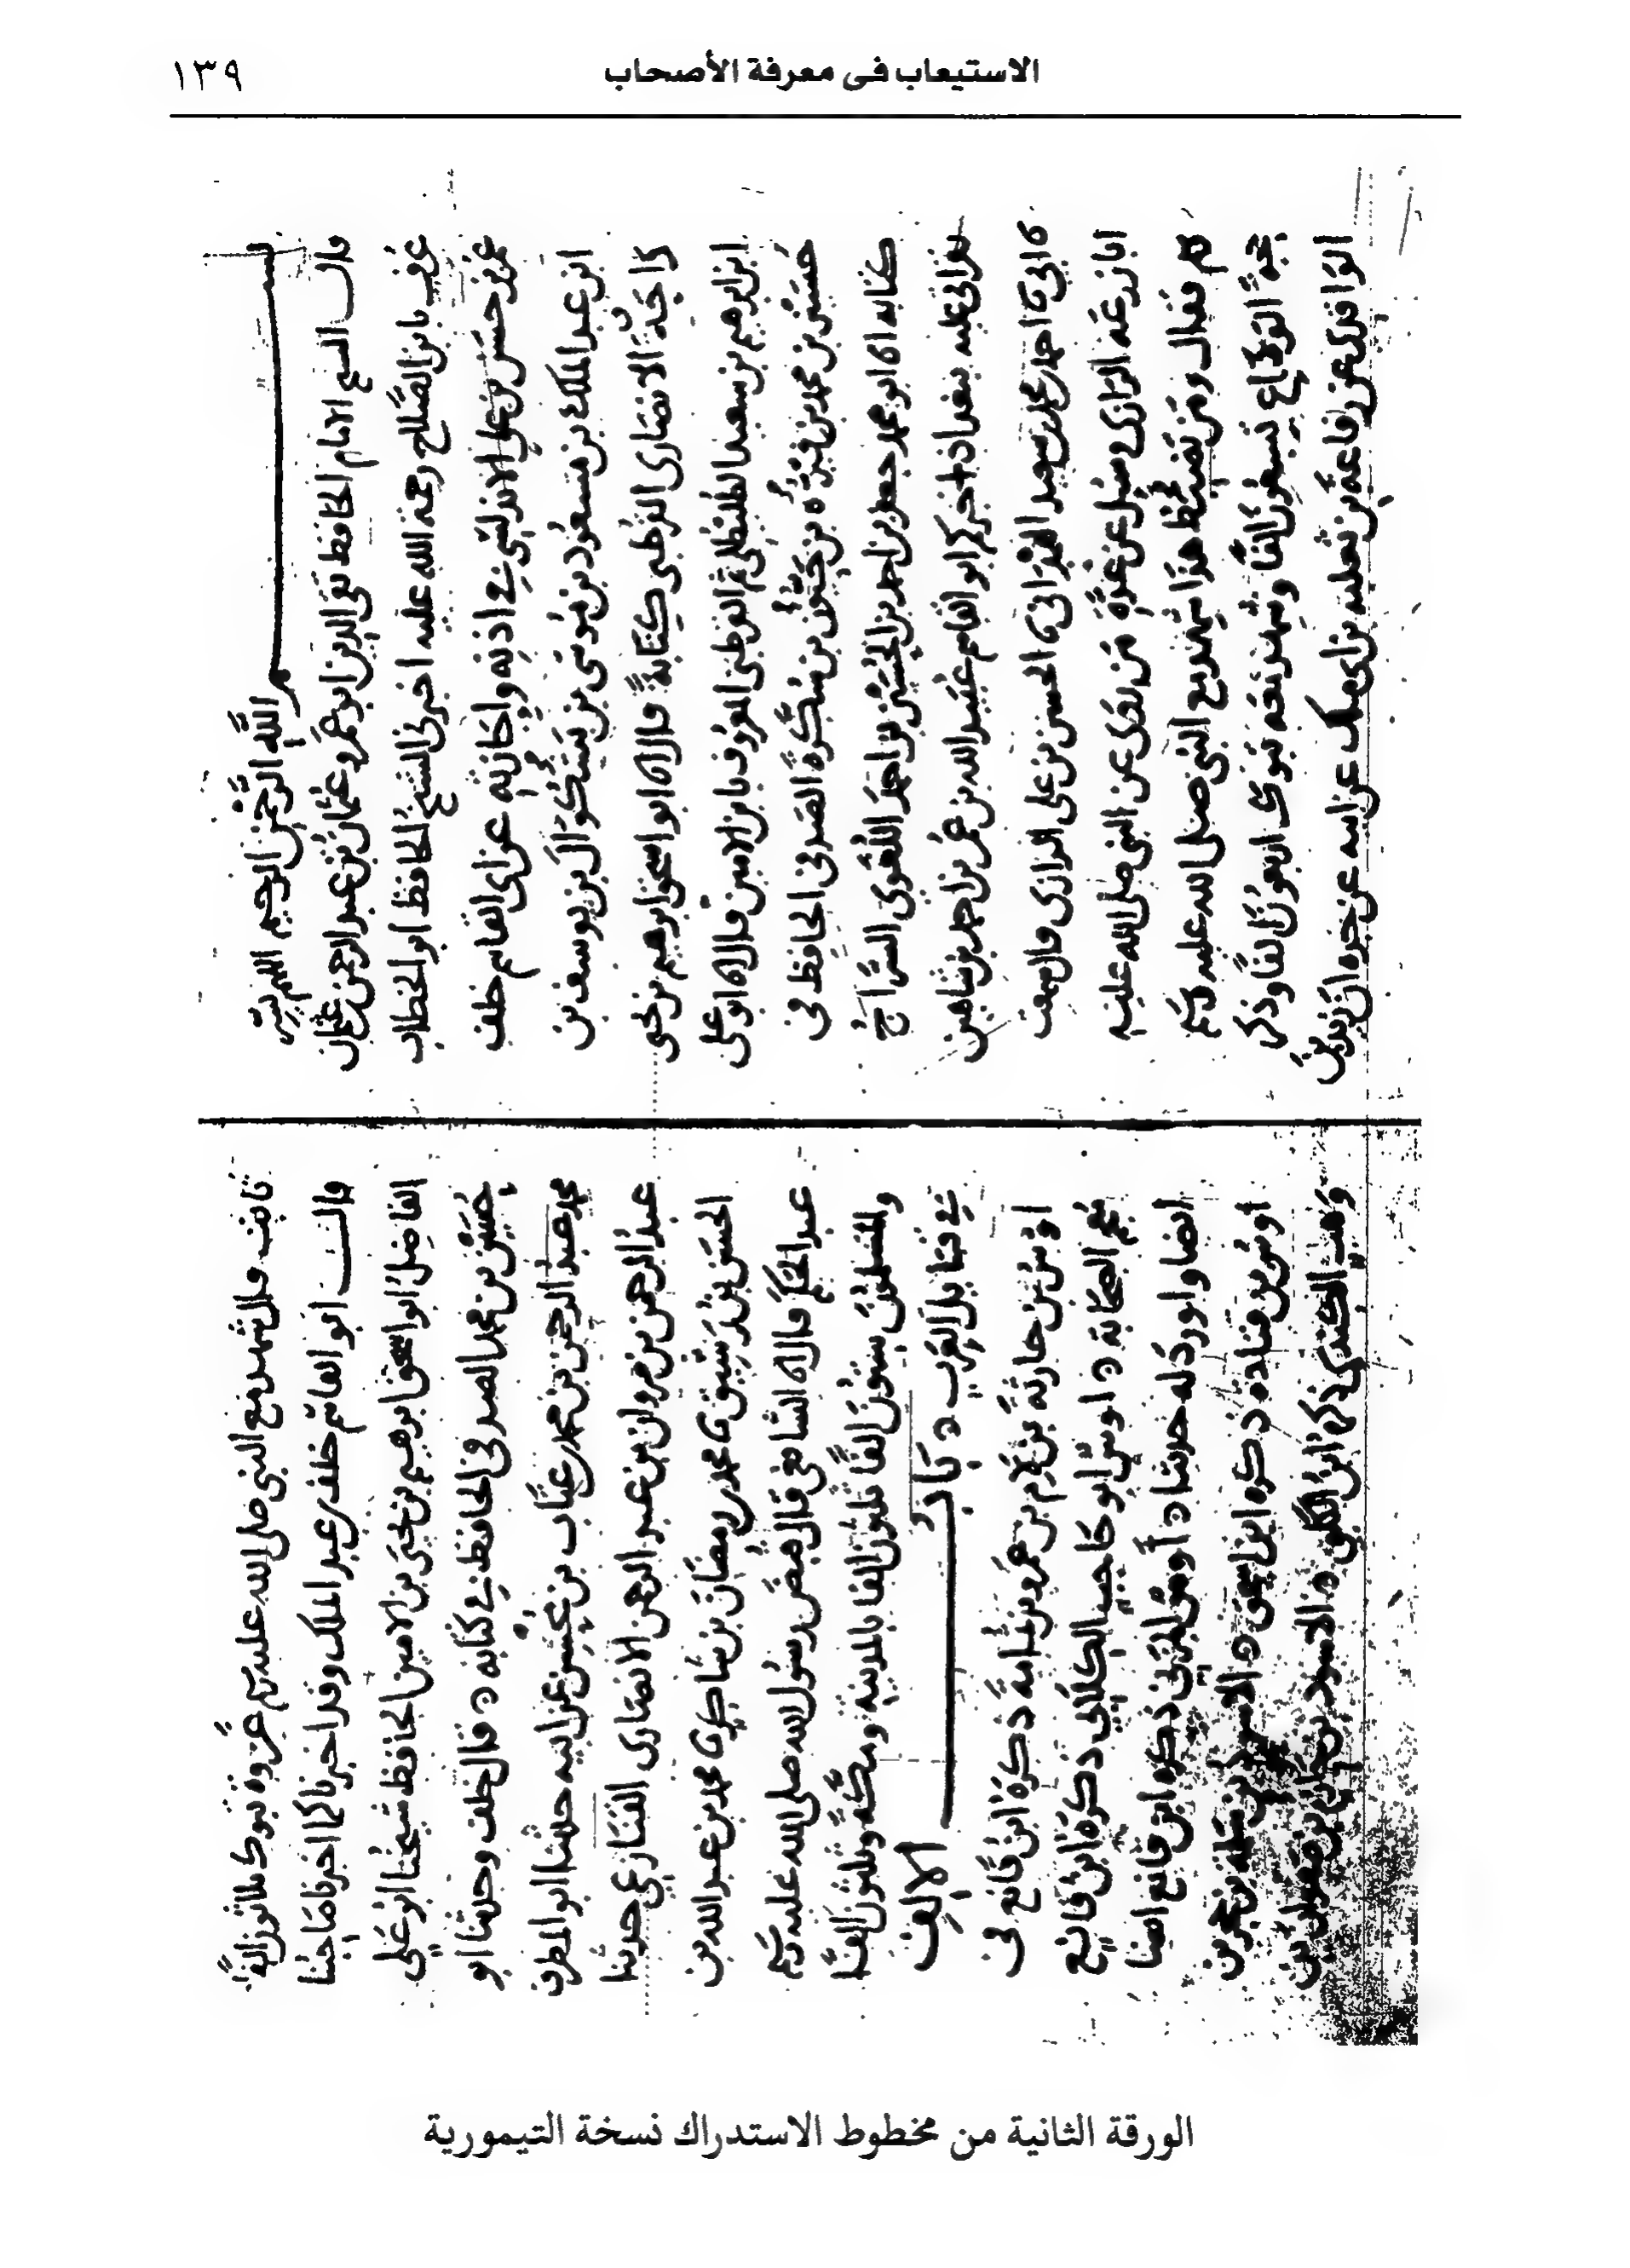 الاستيعاب فى معرفة الأصحاب
١٣٩
بسم الله الرحمن الرحيم اللهم يسر
قال الشيخ الامام الحافظ تقى الدين ابو عمرو عثمان بن عبد الرحمن بن عثمان
عرف بابن الصلاح رحمة الله عليه اخبرنى الشيخ الحافظ ابو الخطاب
عمر بن حسن بن على الاندلسى فى اذنه واجازته عن ابى القاسم خلف
ابن عبد الملك بن مسعود بن موسى بن بشكوال بن يوسف بن
داحة الانصارى القرطبى كتابة قال انا ابو اسحق ابرهيم بن يحيى
ابن ابرهيم بن سعيد الطليطلى ثم القرطبى المعروف بابن الامين قال انا ابو على
حسين بن محمد بن فيره بن حيون بن سكرة الصدفى الحافظ فى
كتابه انا ابو محمد جعفر بن احمد بن الحسين بن احمد اللغوى السراج
بقراتى عليه ببغداد اخبركم ابو القسم عبيد الله بن عمر بن احمد بن شاهين
نا ابى نا احمد بن محمد بن سعيد الهمدانى نا الحسن بن على الرازى قال سمعت
ابا زرعة الرازى وسئل عن عدة من روى عن النبى صلى الله عليه
وسلم فقال ومن يضبط هذا شهد مع النبى صلى الله عليه وسلم
حجة الوداع تسعون الفا وشهد معه تبوك اربعون الفا وذكر
الواقدى عن رفاعة بن ثعلبة بن ابى مالك عن ابيه عن جده ان زيد بن
ثابت قال شهد مع النبى صلى الله عليه وسلم غزوة تبوك ثلاثون الفا
قالت ابو القاسم خلف بن عبد الملك وقد اخبرنا كما اخبرنا صاحبنا
الفاضل ابو اسحق ابرهيم بن يحيى بن الامين الحافظ شيخنا ابو على
حسين بن محمد الصدفى الحافظ فى كتابه قال خلف وحدثنا ابو
محمد عبد الرحمن بن محمد بن عتاب بن محسن عن ابيه حدثنا ابو المطرف
عبد الرحمن بن مروان بن عبد الرحمن الانصارى القنازعى حدثنا
الحسن بن رشيق نا محمد بن رمضان بن شاكر نا محمد بن عبد الله بن
عبد الحكم قال انا الشافعى قال قبض رسول الله صلى الله عليه وسلم
والمسلمون ستون الفا ثلثون الفا بالمدينة ومكة وثلثون الفا
فى قبائل العرب باب الالف
اوس بن حارثة بن لام بن عمرو بن ثمامة ذكره ابن قانع فى
معجم الصحابة اوس ابو حاجب الكلابى ذكره ابن قانع
ايضا واورد له حديثا اوفى المزنى ذكره ابن قانع ايضا
اوس بن قتادة ذكره ابن اسحق الاسود بن سلمة بن حجر بن
وهب الكندى ذكره ابن الكلبى الاسود بن
الورقة الثانية من مخطوط الاستدراك نسخة التيمورية